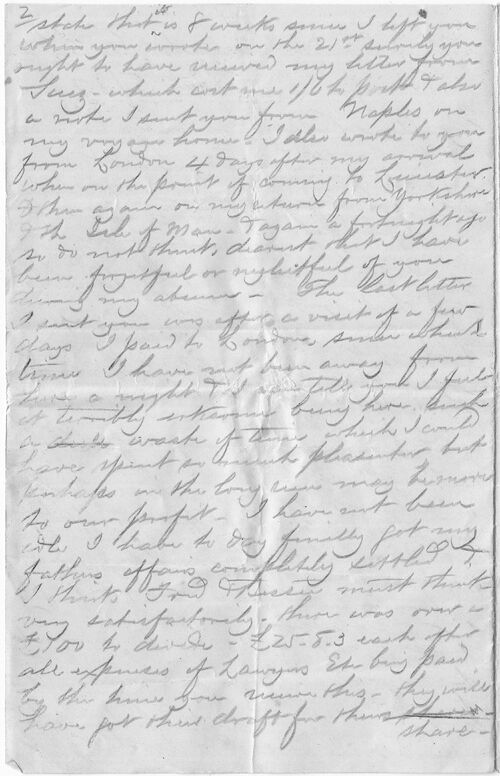 2
state that it is 8 weeks since I left you
when you wrote on the 21st surely you
ought to have received my letter from
Suez - which cost me 1/6 to post & also
a note I sent you from Naples on
my voyage home - I also wrote to you
from London 4 days after my arrival
when on the point of coming to Leicester
& then again on my return from Yorkshire
& the Isle of Man - & again a fortnight ago
so do not think, dearest that I have
been forgetful or neglectful of you
during my absence - The last letter
I sent you was after a visit of a few
days I paid to London, since which
time I have not been away from
here a night & I can tell you I feel
it terribly irksome being here. such
a waste of time which I could
have spent so much pleasanter but
perhaps in the long run may be more
to our profit - I have not been
idle I have to day finally got my
fathers affairs completely settled &
I think Fred & must think
very satisfactorily - there was over a
£100 to divide - £25-8.3 each after
all expenses of Lawyers Etc being paid
by the time you receive this - they will
have got their draft for their
share -